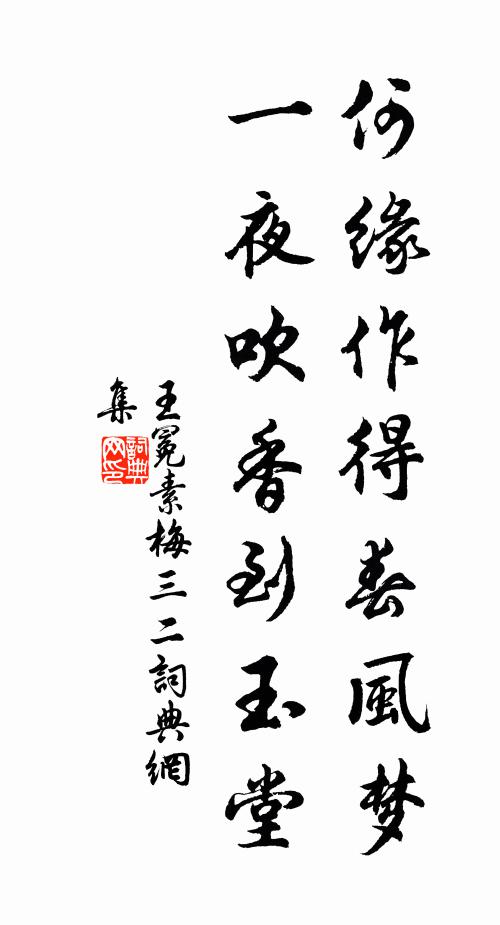 何緣作得春風梦
一夜吹香到玉堂
王冕素梅三二詞典網
集
詞典網印